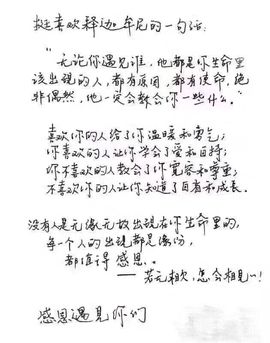 挺喜欢释迦牟尼的一句话:
"无论你遇见谁，他都是你生命里
该出现的人，都有原因，都有使命，绝
非偶然，他一定会教会你一些什么。"
喜欢你的人给了你温暖和勇气;
你喜欢的人让你学会了爱和自持;
你不喜欢的人教会了你宽容和尊重;
不喜欢你的人让你知道了自省和成长.
没有人是无缘无故出现在你生命里的,
每一个人的出现都是缘份,
都值得感恩.
——若无相欠,怎会相见~!
感恩遇见你们